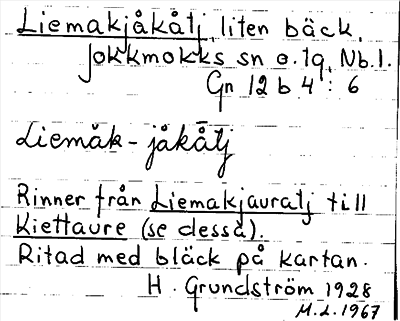 Liemakjåkåtj, liten bäck,
Jokkmokks sn o. lq, Nb.l.
Gn 12 b 4 : 6
Liemåk-jåkåtj
Rinner från Liemakjauratj till
Kiettaure (se dessa).
Ritad med bläck på kartan.
H. Grundström 1928
M.L. 1967